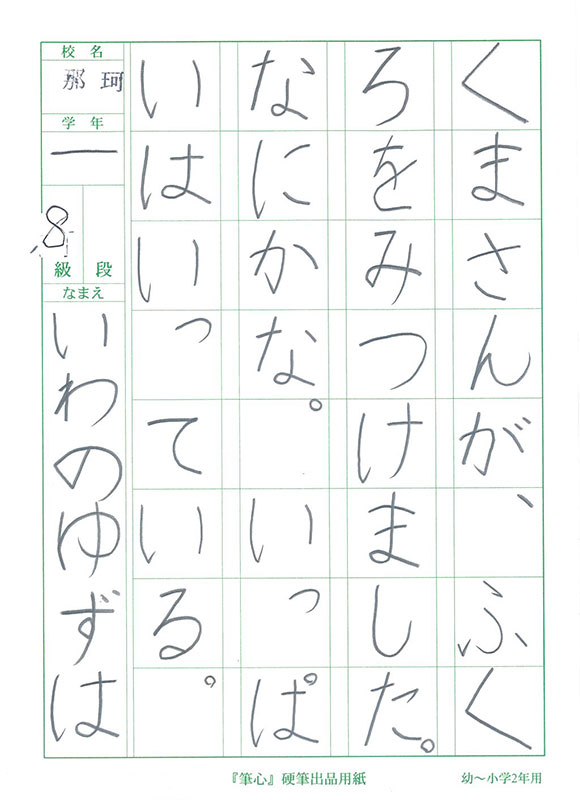 くまさんが、ふく
ろをみつけました。
なにかな。いっぱ
いはいっている。
校名
那珂
学年
一
8
級 段
なまえ
いわのゆずは
『筆心』硬筆出品用紙
幼〜小学2年用